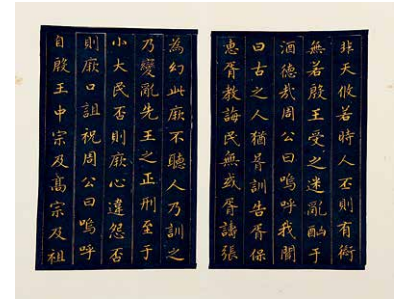 非天攸若時人丕則有愆
無若殷王受之迷亂酗于
酒德哉周公曰嗚呼我聞
曰古之人猶胥訓告胥保
惠胥教誨民無或胥譸張
為幻此厥不聽人乃訓之
乃變亂先王之正刑至于
小大民否則厥心違怨否
則厥口詛祝周公曰嗚呼
自殷王中宗及高宗及祖